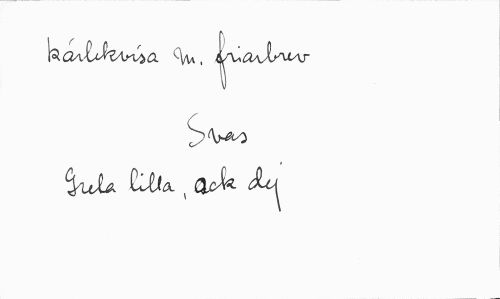 kärlekvisa m. friarbrev
Svas
Greta lilla, ack dej